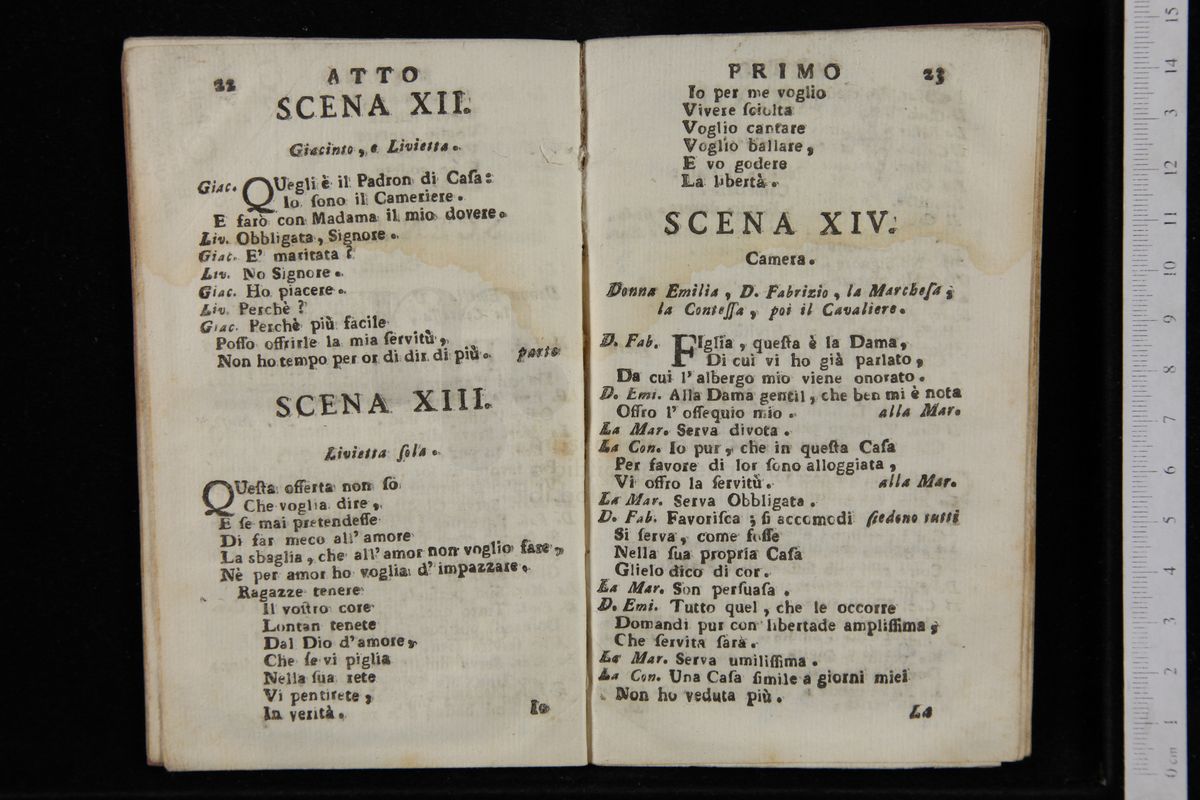 22
ATTO
SCENA XII.
Giacinto, e Livietta.
Giac. QUegli è il Padron di Caſa:
Io ſono il Cameriere.
E farò con Madama il mio dovere.
Liv. Obbligata, Signore.
Giac. E' maritata?
Liv. No Signore.
Giac. Ho piacere.
Liv. Perchè?
Giac. Perchè più facile
Poſſo offrirle la mia ſervitù,
Non ho tempo per or di dir di più. parte
SCENA XIII.
Livietta ſola.
QUeſta offerta non ſò
Che voglia dire,
E ſe mai pretendeſſe
Di far meco all' amore
La sbaglia, che all' amor non voglio fare,
Nè per amor ho voglia d' impazzare.
Ragazze tenere
Il voſtro core
Lontan tenete
Dal Dio d'amore,
Che ſe vi piglia
Nella ſua rete
Vi pentirete,
In verità.
Io
PRIMO
23
Io per me voglio
Vivere ſciolta
Voglio cantare
Voglio ballare,
E vo godere
La libertà.
SCENA XIV.
Camera.
Donna Emilia, D. Fabrizio, la Marcheſa,
la Conteſſa, poi il Cavaliere.
D. Fab. FIglia, queſta è la Dama,
Di cui vi ho già parlato,
Da cui l' albergo mio viene onorato.
D. Emi. Alla Dama gentil, che ben mi è nota
Offro l' oſſequio mio. alla Mar.
La Mar. Serva divota.
La Con. Io pur, che in queſta Caſa
Per favore di lor ſono alloggiata,
Vi offro la ſervitù. alla Mar.
La Mar. Serva Obbligata.
D. Fab. Favoriſca; ſi accomodi ſiedono tutti
Si ſerva, come foſſe
Nella ſua propria Caſa
Glielo dico di cor.
La Mar. Son perſuaſa.
D. Emi. Tutto quel, che le occorre
Domandi pur con libertade ampliſſima;
Che ſervita ſarà.
La Mar. Serva umiliſſima.
La Con. Una Caſa ſimile a giorni miei
Non ho veduta più.
La
0 cm 1 2 3 4 5 6 7 8 9 10 11 12 13 14 15